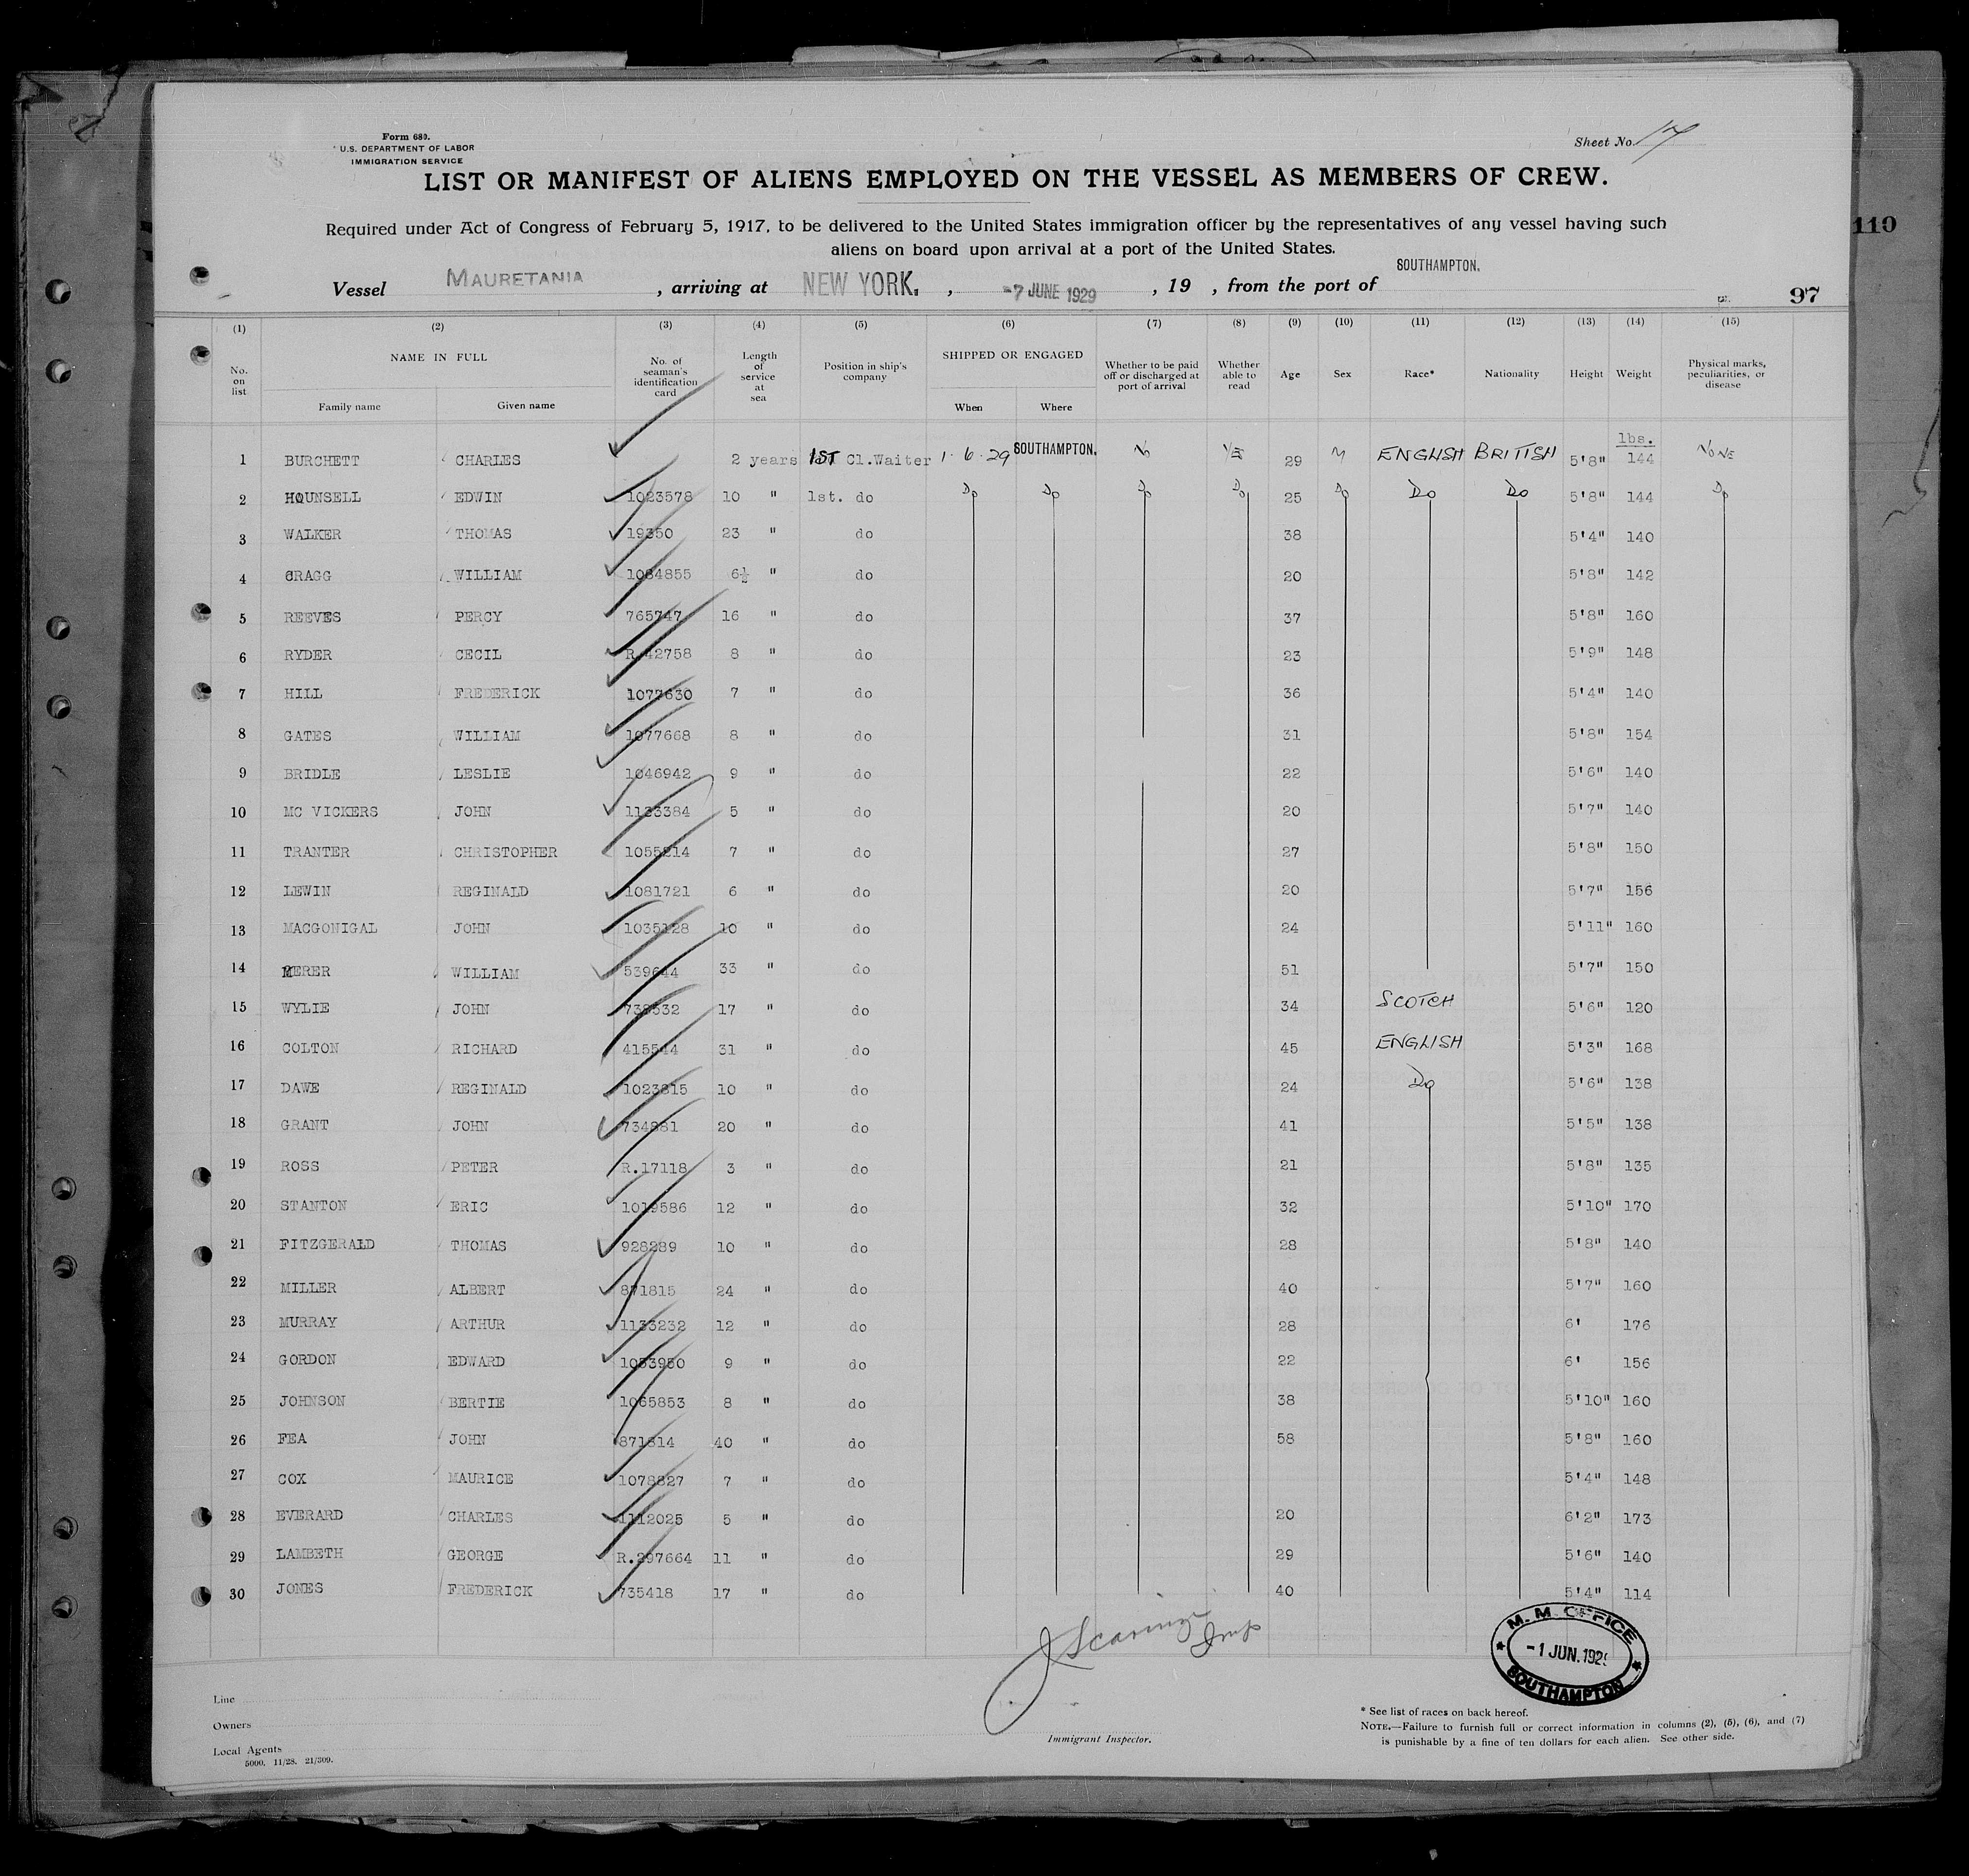 Form 680.
U.S. DEPARTMENT OF LABOR
IMMIGRATION SERVICE
Sheet No. 17
LIST OR MANIFEST OF ALIENS EMPLOYED ON THE VESSEL AS MEMBERS OF CREW.
Required under Act of Congress of February 5, 1917, to be delivered to the United States immigration officer by the representatives of any vessel having such
aliens on board upon arrival at a port of the United States.
110
Vessel MAURETANIA, arriving at NEW YORK, -7 JUNE 1929, 19 , from the port of SOUTHAMPTON.
97
(1) (2) (3) (4) (5) (6) (7) (8) (9) (10) (11) (12) (13) (14) (15)
No. on list NAME IN FULL No. of seaman's identification card Length of service at sea Position in ship's company SHIPPED OR ENGAGED Whether to be paid off or discharged at port of arrival Whether able to read Age Sex Race* Nationality Height Weight Physical marks, peculiarities, or disease
Family name Given name When Where
lbs.
1 BURCHETT CHARLES 2 years 1ST Cl.Waiter 1·6·29 SOUTHAMPTON. No YES 29 M ENGLISH BRITISH 5'8" 144 NONE
2 HOUNSELL EDWIN 1023578 10 " 1st. do Do Do Do Do 25 Do Do Do 5'8" 144 Do
3 WALKER THOMAS 19350 23 " do 38 5'4" 140
4 CRAGG WILLIAM 1084855 6½ " do 20 5'8" 142
5 REEVES PERCY 765747 16 " do 37 5'8" 160
6 RYDER CECIL R.42758 8 " do 23 5'9" 148
7 HILL FREDERICK 1077630 7 " do 36 5'4" 140
8 GATES WILLIAM 1077668 8 " do 31 5'8" 154
9 BRIDLE LESLIE 1046942 9 " do 22 5'6" 140
10 MC VICKERS JOHN 1133384 5 " do 20 5'7" 140
11 TRANTER CHRISTOPHER 1055214 7 " do 27 5'8" 150
12 LEWIN REGINALD 1081721 6 " do 20 5'7" 156
13 MACGONIGAL JOHN 1035128 10 " do 24 5'11" 160
14 WILLIAM 539644 33 " do 51 5'7" 150
15 WYLIE JOHN 17 " do 34 SCOTCH 5'6" 120
16 COLTON RICHARD 415544 31 " do 45 ENGLISH 5'3" 168
17 DAWE REGINALD 1023815 10 " do 24 Do 5'6" 138
18 GRANT JOHN 734981 20 " do 41 5'5" 138
19 ROSS PETER R.17118 3 " do 21 5'8" 135
20 STANTON ERIC 1019586 12 " do 32 5'10" 170
21 FITZGERALD THOMAS 928289 10 " do 28 5'8" 140
22 MILLER ALBERT 871815 24 " do 40 5'7" 160
23 MURRAY ARTHUR 1133232 12 " do 28 6' 176
24 GORDON EDWARD 1053950 9 " do 22 6' 156
25 JOHNSON BERTIE 1065853 8 " do 38 5'10" 160
26 FEA JOHN 871814 40 " do 58 5'8" 160
27 COX MAURICE 1078827 7 " do 5'4" 148
28 EVERARD CHARLES 1112025 5 " do 20 6'2" 173
29 LAMBETH GEORGE R.297664 11 " do 29 5'6" 140
30 JONES FREDERICK 735418 17 " do 40 5'4" 114
J Scaringi Insp
M. M. OFFICE
-1 JUN. 1929
SOUTHAMPTON
Line
Owners
Local Agents
5000. 11/28. 21/309.
Immigrant Inspector.
* See list of races on back hereof.
NOTE.—Failure to furnish full or correct information in columns (2), (5), (6), and (7)
is punishable by a fine of ten dollars for each alien. See other side.